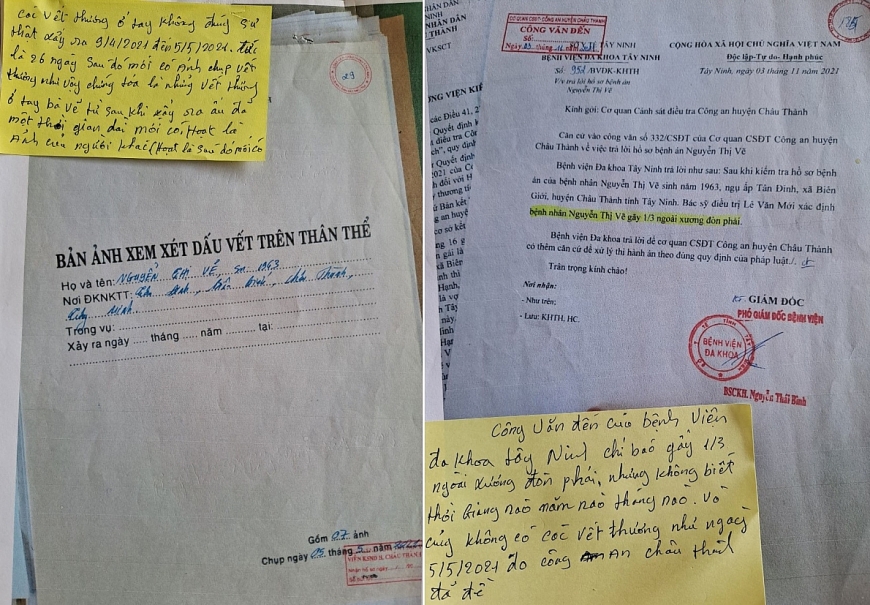 Các vết thương ở tay không đúng sự
thật xảy ra 9/4/2021 đến 5/5/2021. tức
là 26 ngày sau đó mới có ảnh chụp vết
thương như vậy chứng tỏa là những vết thương
ở tay bà vẽ từ sau khi xảy ra ẩu đả
một thời gian dài mới có, Hoạt là
Ảnh của người khai (Hoạt là sau đó mới có
29
BẢN ẢNH XEM XÉT DẤU VẾT TRÊN THÂN THỂ
Họ và tên: NGUYỄN THỊ VẼ, SN 1963
Nơi ĐKNKTT: Tân Định, Biên Giới, Châu Thành,
Tây Ninh
Trong vụ:
Xảy ra ngày ..... tháng ..... năm ......... tại:
Gồm 07 ảnh
Chụp ngày 05 tháng 5 năm
VIỆN KSND H. CHÂU THÀNH
CƠ QUAN CSĐT-CÔNG AN HUYỆN CHÂU THÀNH
CÔNG VĂN ĐẾN
Số:
Ngày 03 tháng 11
TÂY NINH
BỆNH VIỆN ĐA KHOA TÂY NINH
Số: 952/BVĐK-KHTH
V/v trả lời hồ sơ bệnh án
Nguyễn Thị Vẽ
CỘNG HÒA XÃ HỘI CHỦ NGHĨA VIỆT NAM
Độc lập-Tự do- Hạnh phúc
Tây Ninh, ngày 03 tháng 11 năm 2021
Kính gởi: Cơ quan Cảnh sát điều tra Công an huyện Châu Thành
Căn cứ vào công văn số 332/CSĐT của Cơ quan CSĐT Công an huyện
Châu Thành về việc trả lời hồ sơ bệnh án Nguyễn Thị Vẽ
Bệnh viện Đa khoa Tây Ninh trả lời như sau: Sau khi kiểm tra hồ sơ bệnh
án của bệnh nhân Nguyễn Thị Vẽ sinh năm 1963, ngụ ấp Tân Định, xã Biên
Giới, huyện Châu Thành tỉnh Tây Ninh. Bác sỹ điều trị Lê Văn Mới xác định
bệnh nhân Nguyễn Thị Vẽ gãy 1/3 ngoài xương đòn phải.
Bệnh viện Đa khoa trả lời để cơ quan CSĐT Công an huyện Châu Thành
có thêm căn cứ để xử lý thi hành án theo đúng quy định của pháp luật./.
Trân trọng kính chào!
Nơi nhận:
- Như trên;
- Lưu: KHTH, HC.
GIÁM ĐỐC
PHÓ GIÁM ĐỐC BỆNH VIỆN
BỆNH VIỆN
ĐA KHOA
BSCKII. Nguyễn Thái Bình
Công Văn đến của bệnh Viện
đa khoa tây Ninh chỉ báo gẫy 1/3
ngoài xướng đòn phải, nhưng không biết
thời Giang nào năm nào tháng nào. Và
cũng không có các vết thương như ngày
5/5/2021 do công An châu thành
đã để